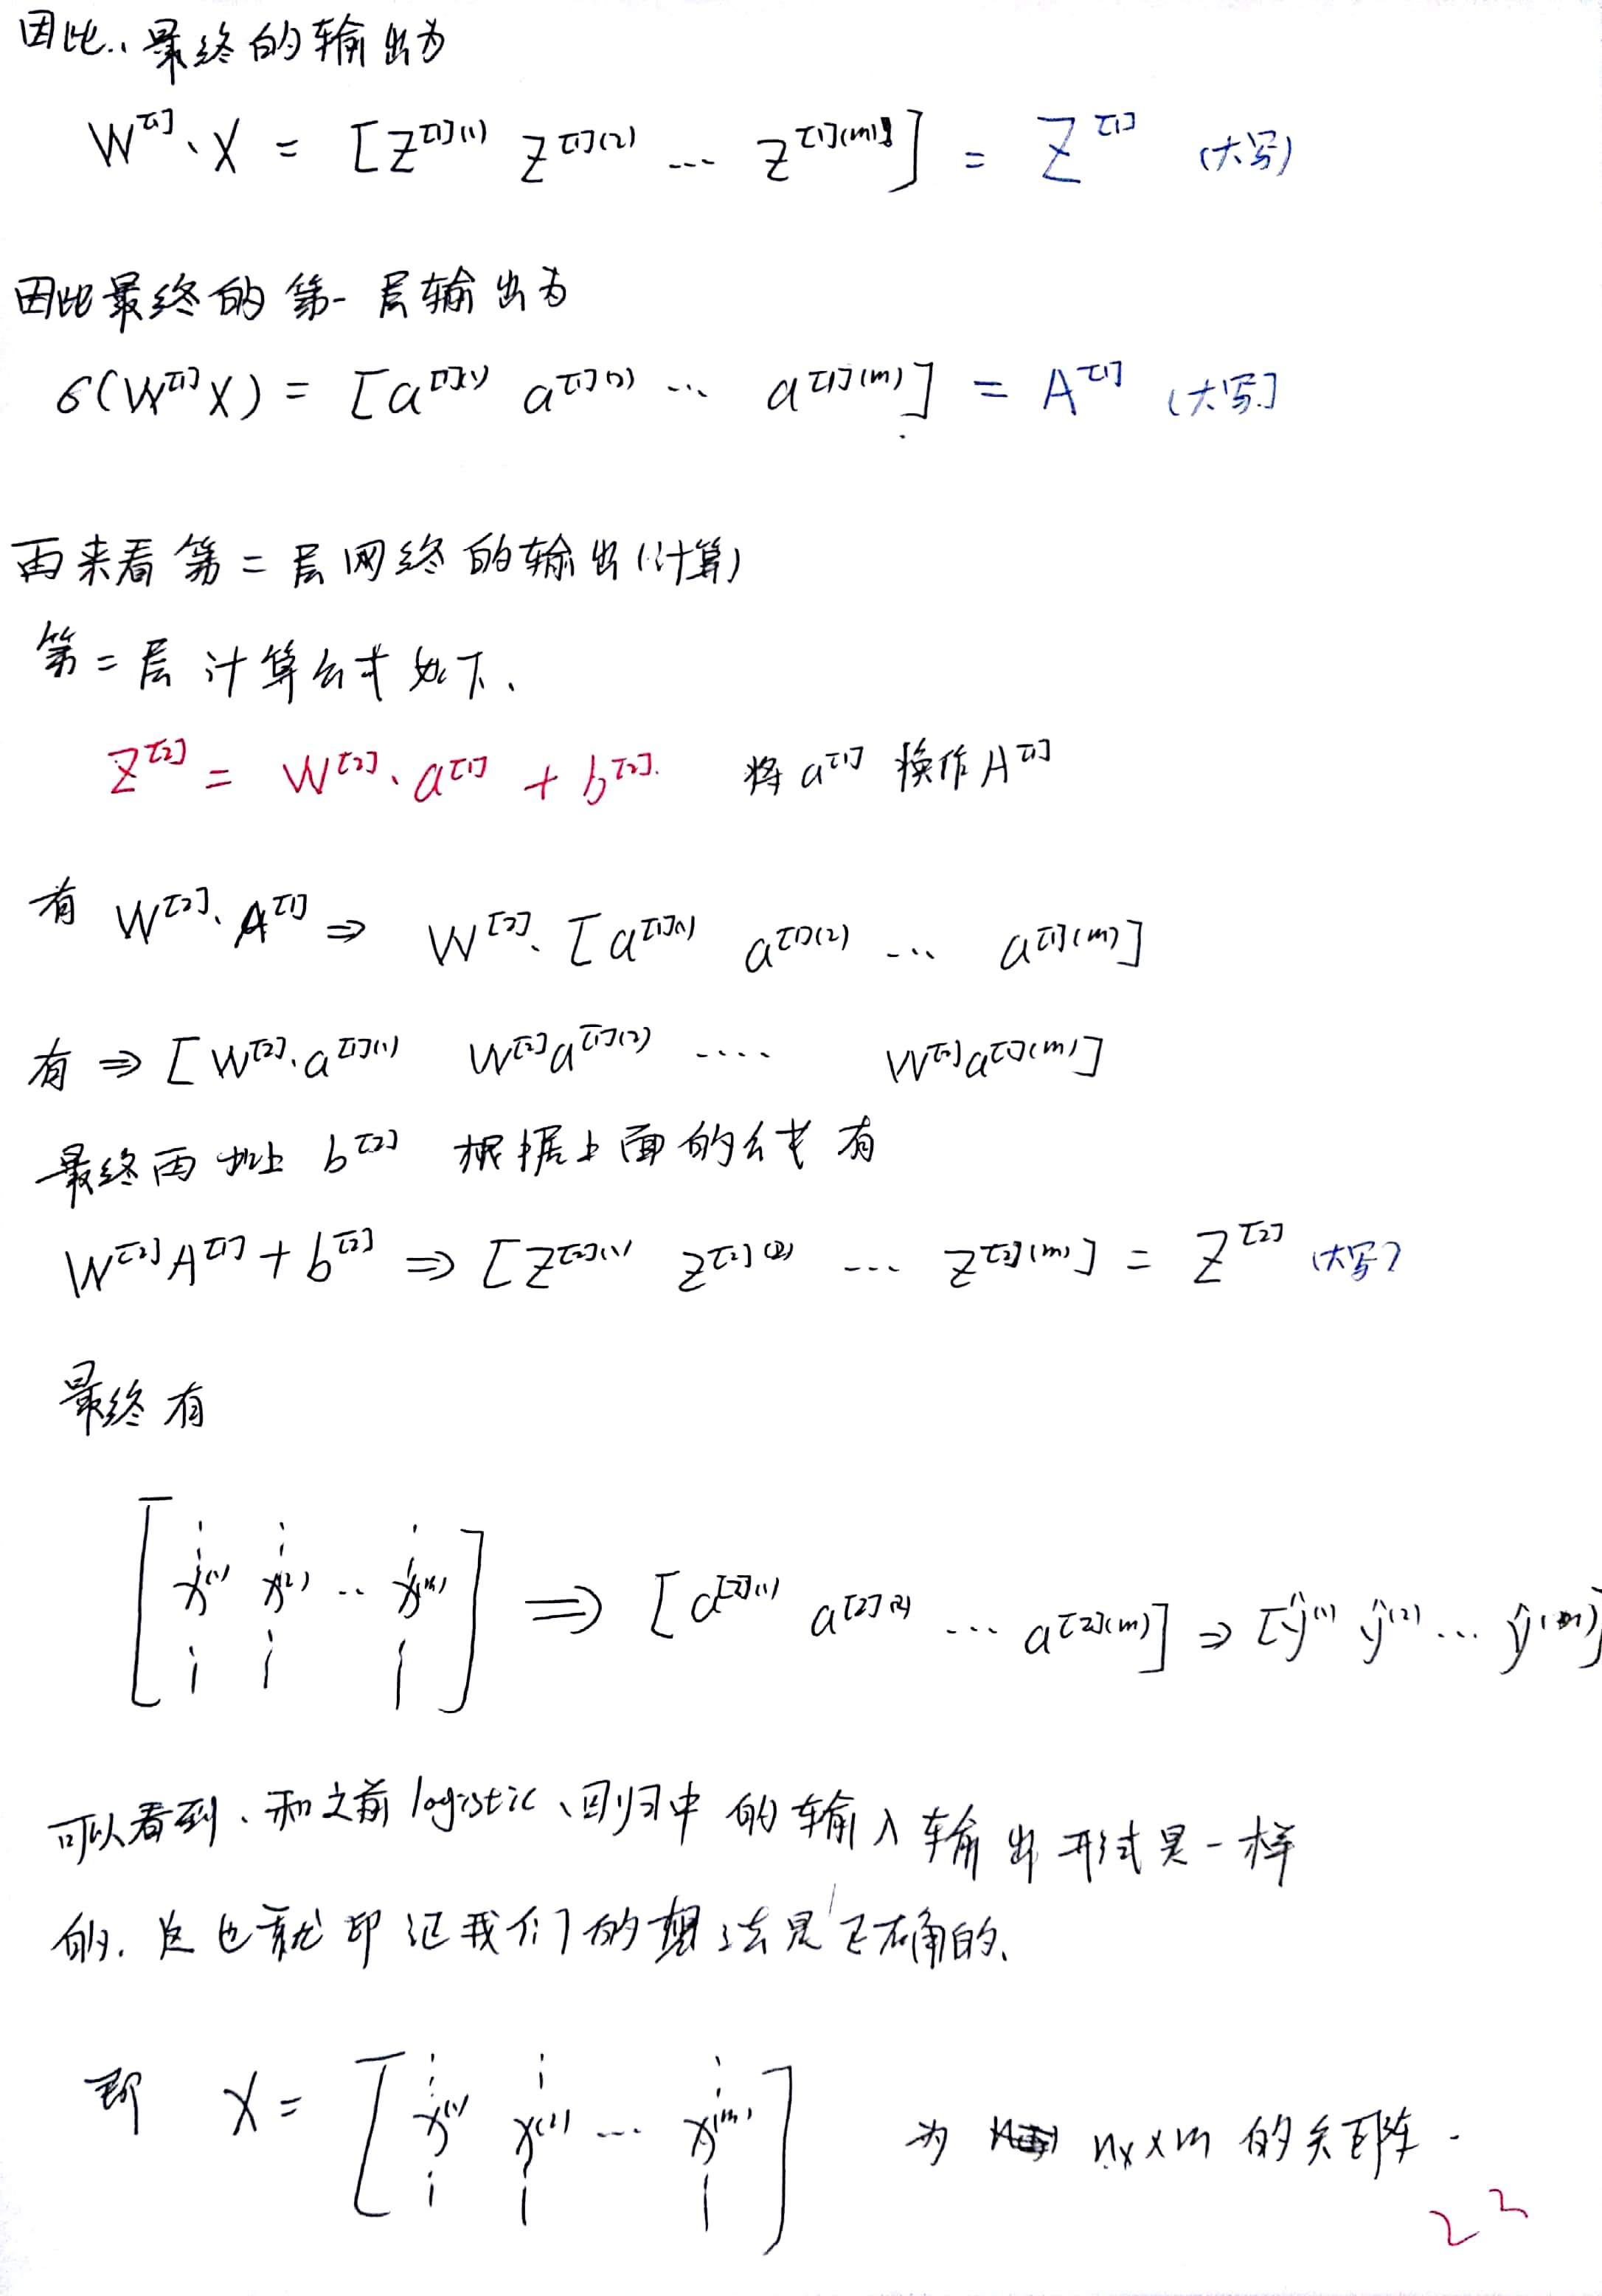 因此、最终的输出为
W^[1]·X = [Z^[1](1) Z^[1](2) ... Z^[1](m)] = Z^[1] (大写)
因此最终的第一层输出为
σ(W^[1]X) = [a^[1](1) a^[1](2) ... a^[1](m)] = A^[1] (大写)
再来看第二层网络的输出(计算)
第二层计算公式如下、
Z^[2] = W^[2]·a^[1] + b^[2]. 将a^[1]换作A^[1]
有 W^[2]·A^[1] ⇒ W^[2]·[a^[1](1) a^[1](2) ... a^[1](m)]
有 ⇒ [W^[2]·a^[1](1) W^[2]a^[1](2) .... W^[2]a^[1](m)]
最终再加上 b^[2] 根据上面的公式有
W^[2]A^[1] + b^[2] ⇒ [Z^[2](1) Z^[2](2) ... Z^[2](m)] = Z^[2] (大写)
最终有
[x^(1) x^(2) .. x^(m)] ⇒ [a^[2](1) a^[2](2) ... a^[2](m)] ⇒ [ŷ^(1) ŷ^(2) ... ŷ^(m)]
可以看到、和之前logistic、回归中的输入输出形式是一样
的. 这也就印证我们的想法是正确的、
即 X = [x^(1) x^(2) ... x^(m)] 为 n_x×m 的矩阵.
22